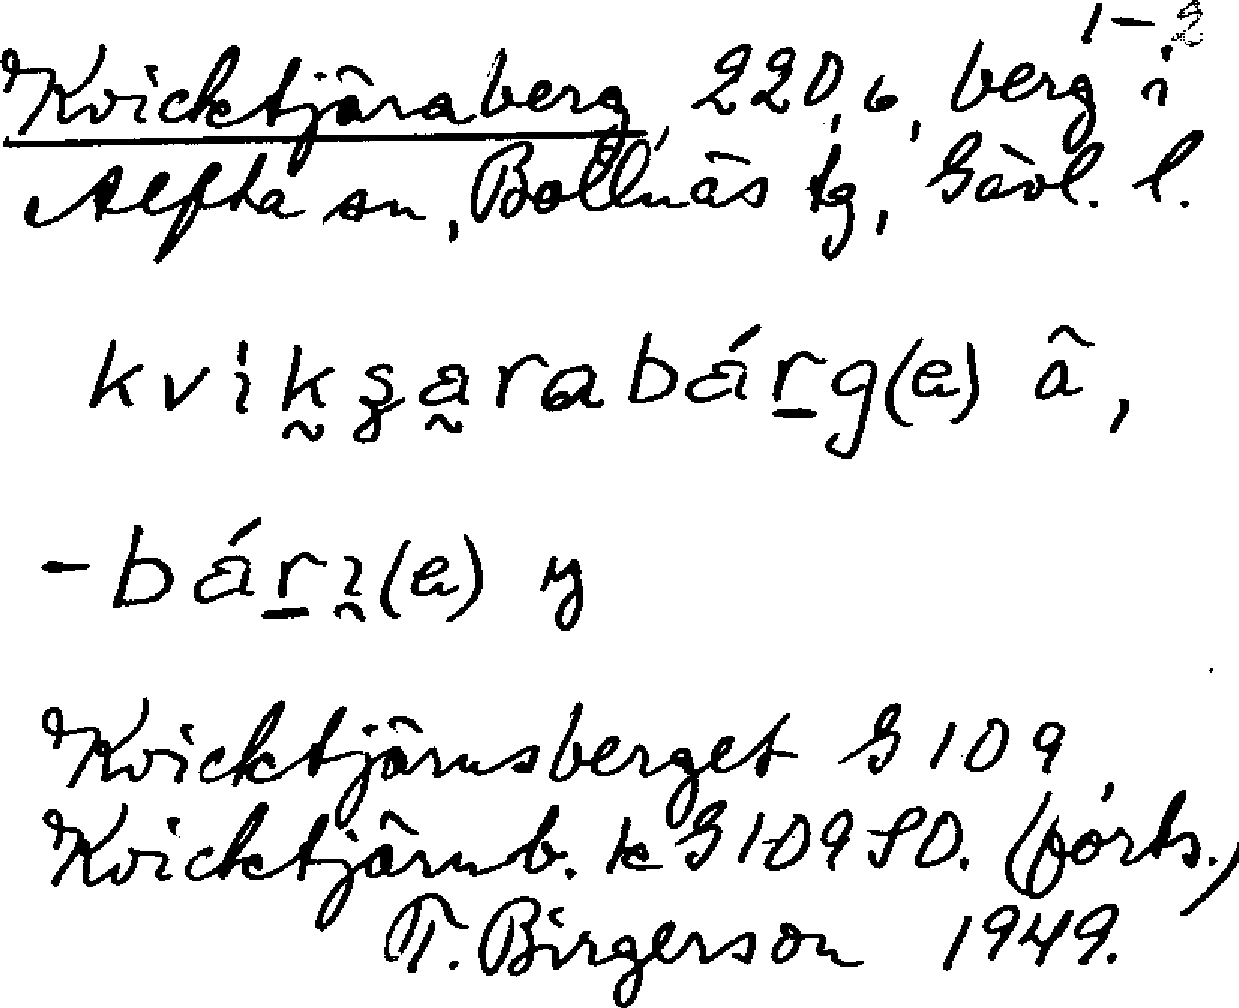 1–2
Kvicktjäraberg, 220,6, berg i
Alfta sn, Bollnäs tg, Gävl. l.
kvik̰ʂa̰rabár̲g(e) â,
-bár̲ḭ(e) y
Kvicktjärnsberget G 109,
Kvicktjärnb. k G 109 SO. (forts.)
T. Birgerson 1949.